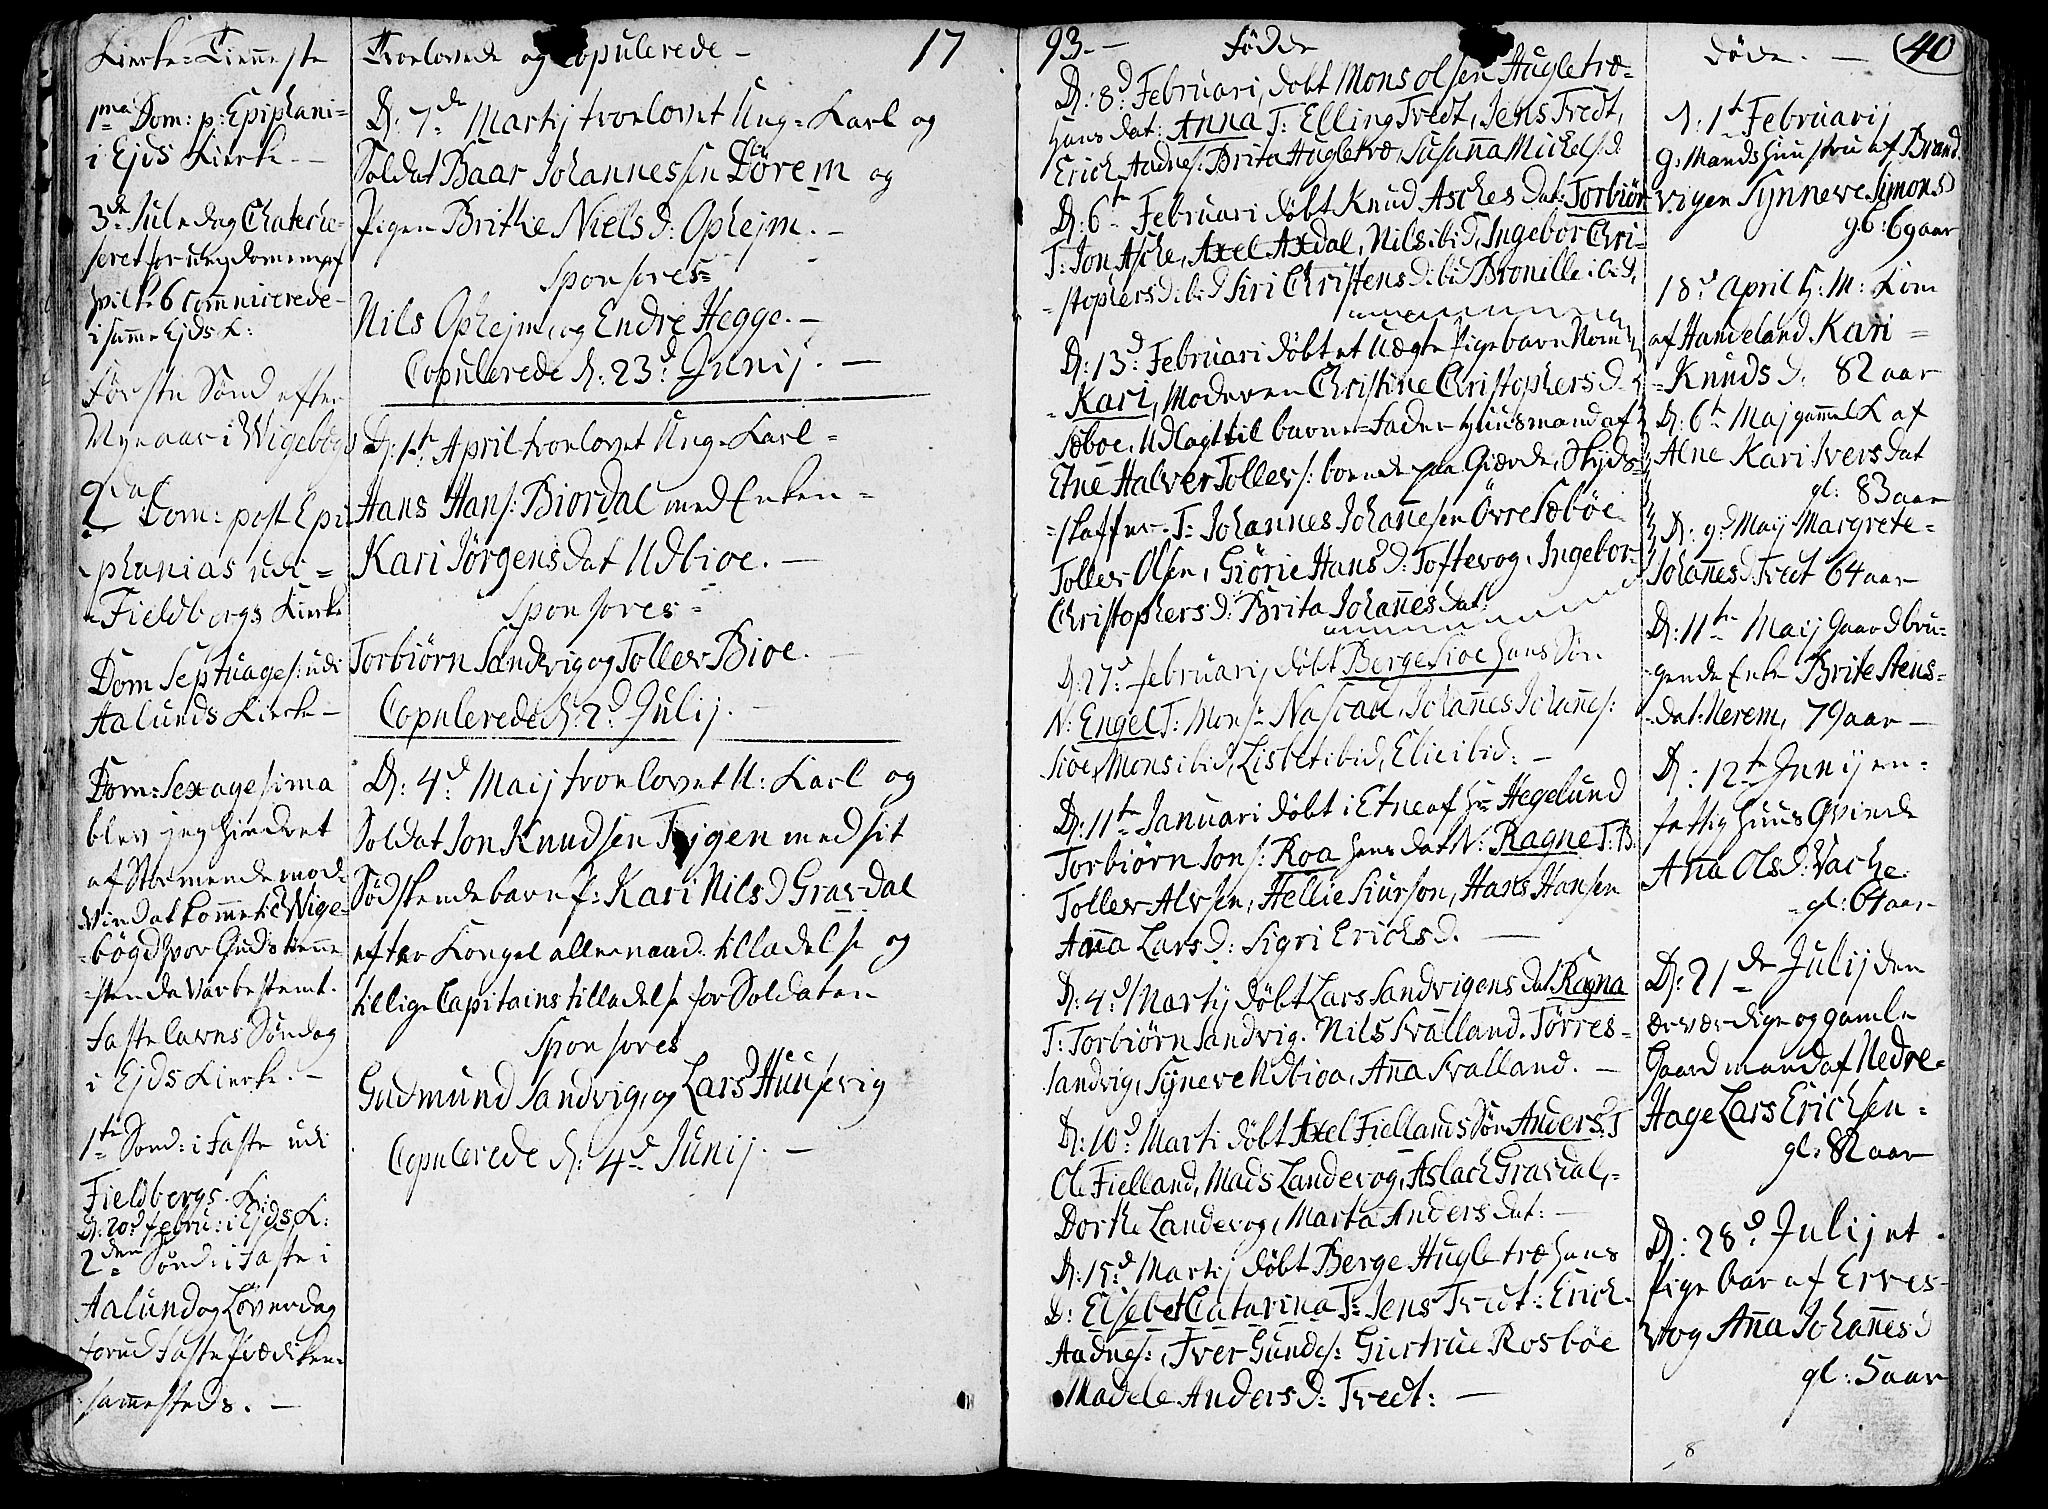 Kierke-Tienneste
1ma Dom: p: Epiphani=
i Ejds Kierke. -
3de Juledag Chateche-
seret for ungdommen af
hvilke 6 comunicerede
i samme Ejds K:
Første Sønd efter
Nyeaar i Wigebøgd
2da Dom: post Epi
phanias udi =
Fieldbergs Kierke
Dom Septuages: udi
Aalunds Kierke -
Dom: Sexagesima
blev jeg hindret
af Stormende mod
Vind at komme til Wige-
bøgd hvor Gudstienne
sten da var bestemt.
Fastelavns Søndag
i Ejds Kierke. -
1te Sønd: i Faste udi
Fieldbergs K:
D: 20d Febru: i Ejds K:
2den Sønd: i Faste i
Aalund og Løverdag
forud Faste Prædiken
sammesteds. -
Troelovede og Copulerede - 17
D: 7de Martij troelovet Ung-Karl og
Soldat Baar Johannessen Dörem og
Pigen Brithe Niels D: Ophejm. -
Sponsores =
Nils Ophejm, og Endre Hegge. -
Copulerede d: 23d Junij. -
D: 1te April troelovet Ung-Karl =
Hans Hans: Biordal med Enken =
Kari Jörgens dat Udbioe. -
Sponsores =
Torbiörn Sandvig og Tollev Bioe. -
Copulerede d: 2d Julij. -
D: 4d Maij troelovet U: Karl og
Soldat Jon Knudsen med sit
Södskendebarn f: Kari Nils D Gravdal
efter Kongel allernaad. tilladelse og
tillige Capitains tilladelse for Soldaten
Sponsores
Gudmund Sandvig, og Lars Huusevig
Copulerede d: 4d Junij. -
93. - Födde
D: 8d Februari, döbt Mons Olsen Hugletræ-
hans dat: Anna T: Elling Tvedt, Jens Tvedt,
Erich Aadnes: Brita Hugletræ, Susanna Michels: d
D: 6te Februari döbt Knud Asches dat: Torbiör
T: Jon Asche, Axel Axdal, Nils ibid, Ingebor Chri-
stophers D: ibid Siri Christens D: ibid Pronille ibid,
D: 13d Februari döbt et Uægte Pigebarn Nom
Kari, Moderen Christine Christophers D.
Sæboe, Udlagt til barne-Fader Huusmand af
Etne Halver Tollevs: boende paa Giærde, Skyds-
skaffer. T: Johannes Johannesen Övre Sæböe
Tollev Olsen, Giörie Hans D: Toftevog, Ingebor
Christophers D: Brita Johannes dat:
D: 27d februarij döbt Berge Sioe hans Sön
N: Engel T: Mons Nastad, Johannes Johannes:
Sioe, Mons ibid, Lisbet ibid, Elie ibid: -
D: 11te Januari döbt i Etne af Hr Hegelund
Torbiörn Jons: Roa hans dat N: Ragne T: B:
Tollev Alvsen, Hellie Siurson, Hans Hansen
Anna Lars D: Sigri Erichs d. -
D: 4d Martij döbt Lars Sandvigens dat Ragna
T: Torbiörn Sandvig. Nils Svalland. Törres-
Sandvig, Syneve Udbioa, Anna Svalland. -
D: 10d Marti döbt Axel Fiellands Sön Anders: T
Ole Fielland, Mads Landevog, Aslach Gravdal,
Dorthe Landevog, Marta Anders dat: -
D: 15d Martij döbt Berge Hugletræ hans
D: Elsebet Catarina T: Jens Tvedt: Erich
Aadnes:, Iver Gundes: Giertrue Rosböe
Madele Anders D: Tvedt: -
Döde. - 40
D: 1te Februarij
G: Mands Huustru af Brand
vigen Synneve Simons D
gl: 69 aar
18d April G: M: Kone
af Handeland Kari =
Knuds D. 82 aar
D: 6te Maj gammel K af
Alne Kari Ivers dat
gl: 83 aar
D: 9d Maij Margrete-
Johannes D Tvedt 64 aar
D: 11te Maij Gaardbru-
gende Enke Brite Stens-
dat: Nerem, 79 aar -
D: 12te Junij en =
fattig huus Qvinde
Anna Ols D: Vache
gl: 64 aar
D: 21de Julij den
ærværdige og gamle
Gaardmand af Nedre-
Hage Lars Erichsen =
gl: 82 aar
D: 28d Julij et
Pige bar af Erves-
vog Anna Johannes D
gl: 5 aar
8